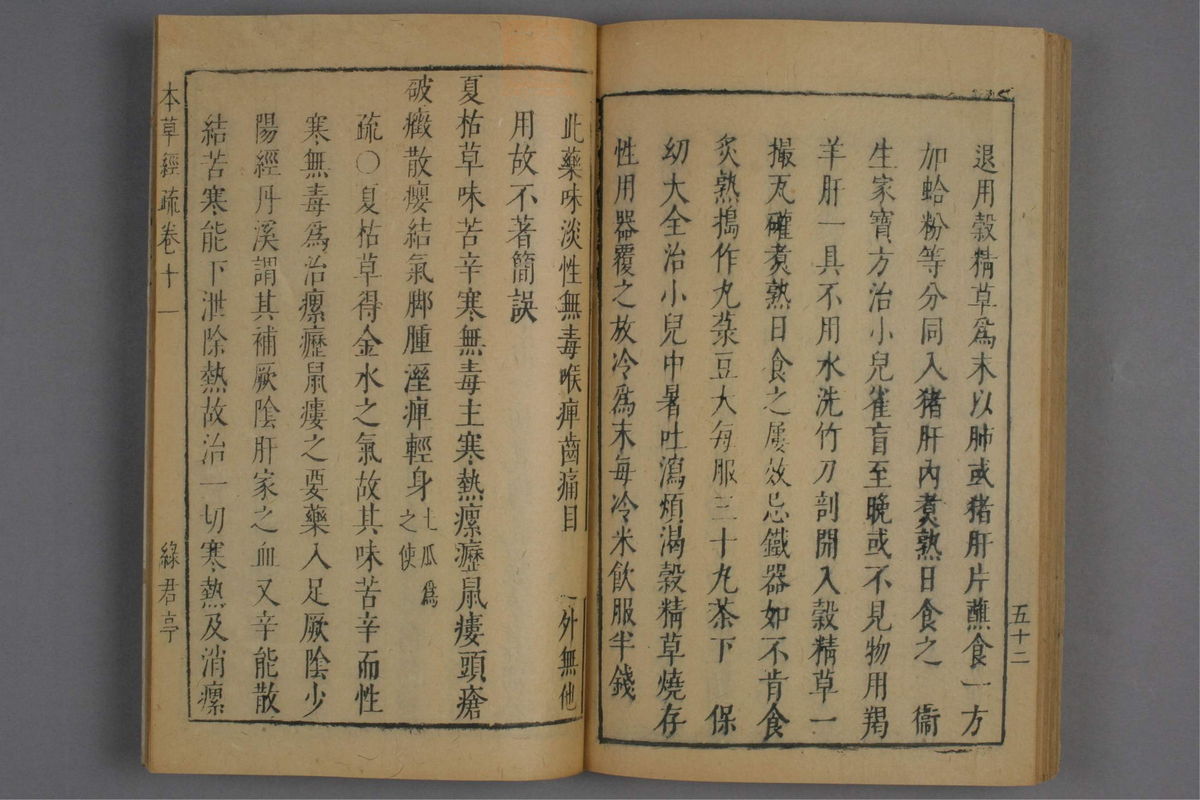 退用穀精草爲末以肺或猪肝片蘸食一方
加蛤粉等分同入猪肝內煑熟日食之 衞
生家寶方治小兒雀盲至晚或不見物用羯
羊肝一具不用水洗竹刀剖開入穀精草一
撮瓦確煑熟日食之屢效忌鐵器如不肯食
炙熟搗作丸菉豆大每服三十丸茶下 保
幼大全治小兒中暑吐瀉煩渴穀精草燒存
性用器覆之放冷爲末每冷米飲服半錢
五十二
此藥味淡性無毒喉痺齒痛目 外無他
用故不著簡誤
夏枯草味苦辛寒無毒主寒熱瘰癧鼠瘻頭瘡
破癥散癭結氣脚腫溼痺輕身土瓜爲之使
疏○夏枯草得金水之氣故其味苦辛而性
寒無毒爲治瘰癧鼠瘻之要藥入足厥陰少
陽經丹溪謂其補厥陰肝家之血又辛能散
結苦寒能下泄除熱故治一切寒熱及消瘰
本草經疏卷十一
綠君亭